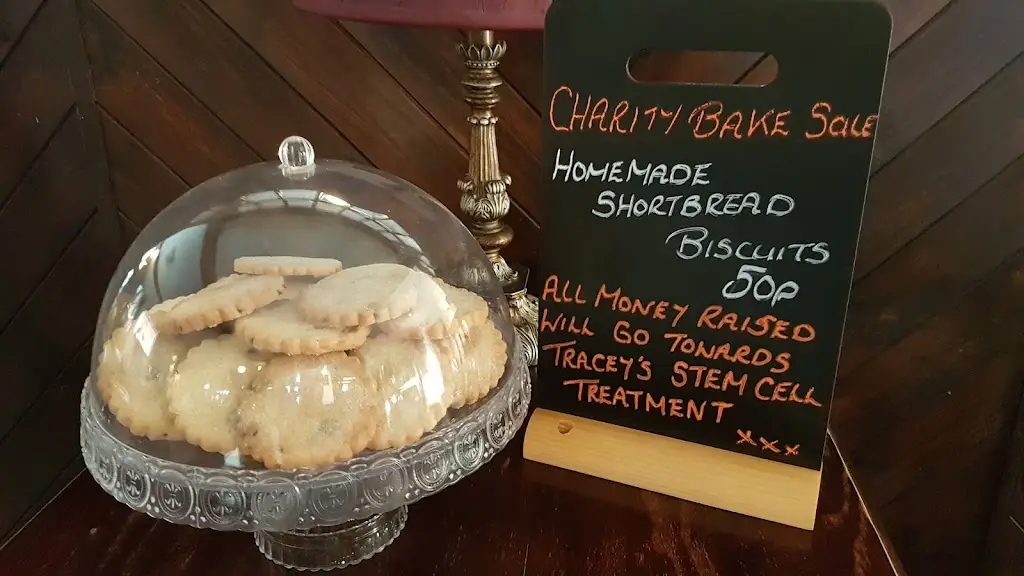 CHARITY BAKE SALE
HOMEMADE
SHORTBREAD
BISCUITS
50p
ALL MONEY RAISED
WILL GO TOWARDS
TRACEY'S STEM CELL
TREATMENT
xxx